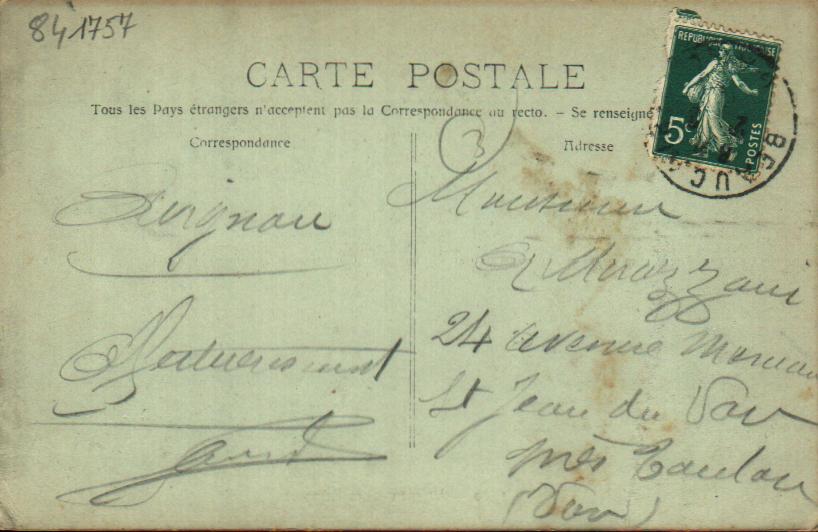 841757
CARTE POSTALE
Tous les Pays étrangers n'acceptent pas la Correspondance au recto. - Se renseigne
Correspondance
3
Adresse
REPUBLIQUE FRANÇAISE
5c
POSTES
BEAUC
Avignon
Monsieur
24 avenue
St Jean du Var
près Toulon
(Var)